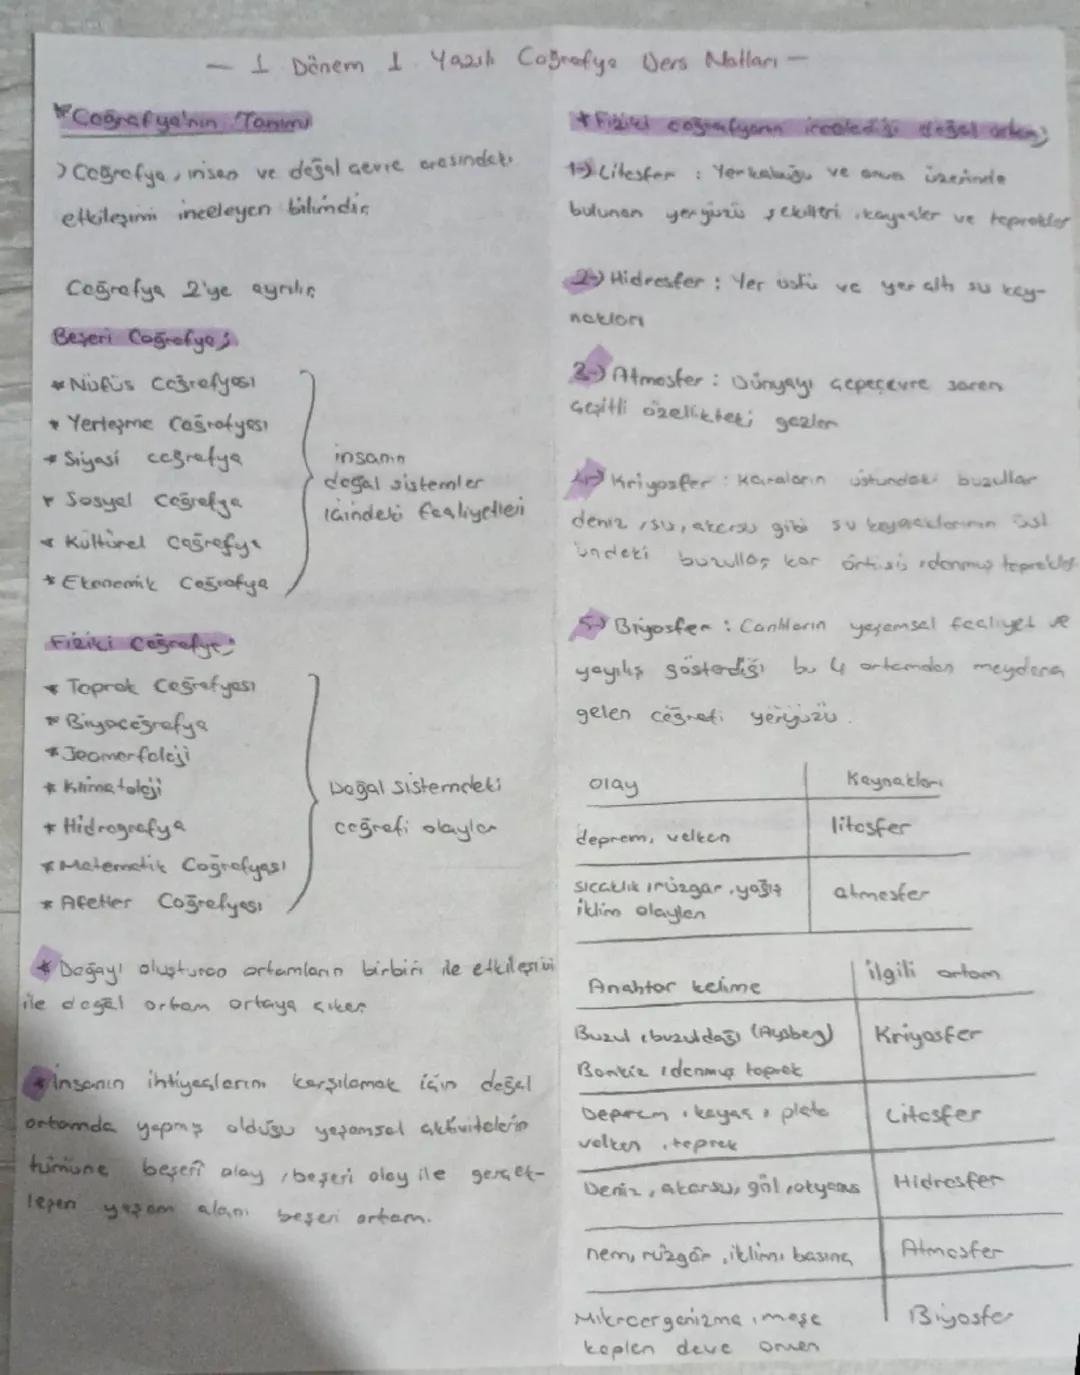 — 1 Dönem 1 Yazılı Coğrafya Ders Notları —
* Coğrafya'nın Tanımı
Coğrafya, insan ve doğal çevre arasındaki
etkileşimi inceleyen bilimdir.
Coğrafya 2'ye ayrılır;
Beşeri Coğrafya;
* Nüfüs Coğrafyası
* Yerleşme Coğrafyası
* Siyasi coğrafya
* Sosyal Coğrafya
* Kültürel Coğrafya
* Ekonomik Coğrafya
insanın
doğal sistemler
içindeki faaliyetleri
Fiziki Coğrafya;
* Toprak Coğrafyası
* Biyocoğrafya
* Jeomorfoloji
* Klimatoloji
* Hidrografya
* Matematik Coğrafyası
* Afetler Coğrafyası
Doğal sistemdeki
coğrafi olaylar
* Doğayı oluşturan ortamların birbiri ile etkileşimi
ile doğal ortam ortaya çıkar.
* İnsanın ihtiyaçlarını karşılamak için doğal
ortamda yapmış olduğu yaşamsal aktivitelerin
tümüne beşeri olay, beşeri olay ile gerçek-
leşen yaşam alanı beşeri ortam.
* Fiziki coğrafyanın incelediği doğal ortam;
1-) Litosfer : Yerkabuğu ve onun üzerinde
bulunan yeryüzü şekilleri, kayaçlar ve topraklar
2-) Hidrosfer : Yer üstü ve yer altı su kay-
nakları
3-) Atmosfer : Dünyayı çepeçevre saran
çeşitli özellikteki gazlar
4-) Kriyosfer : Karaların üstündeki buzullar
deniz, su, akarsu gibi su kaynaklarının üst
ündeki buzullar, kar örtüsü, donmuş topraklar
5-) Biyosfer : Canlıların yaşamsal faaliyet ve
yayılış gösterdiği bu 4 ortamdan meydana
gelen coğrafi yeryüzü.
olay Kaynakları
deprem, volkan litosfer
sıcaklık, rüzgar, yağış atmosfer
iklim olayları
Anahtar kelime ilgili ortam
Buzul, buzuldağı (Aysberg) Kriyosfer
Bankiz, donmuş toprak
Deprem, kayaç, plato Litosfer
volkan, toprak
Deniz, akarsu, göl, okyanus Hidrosfer
nem, rüzgâr, iklim, basınç Atmosfer
Mikroorganizma, meşe Biyosfer
kaplan deve orman